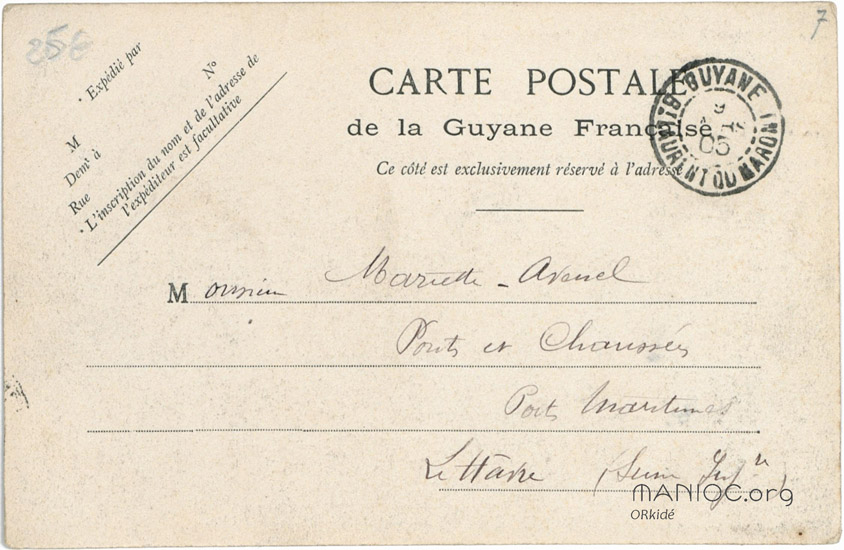 25€
7
* Expédié par
M N°
Dem.t à
Rue
* L'inscription du nom et de l'adresse de
l'expéditeur est facultative
CARTE POSTALE
de la Guyane Française
Ce côté est exclusivement réservé à l'adresse
GUYANE
9
05
LAURENT DU MARONI
Monsieur Mariette - Avenel
Ponts et Chaussées
Ports Maritimes
Le Havre (Seine Inf.re)
MANIOC.org
ORkidé